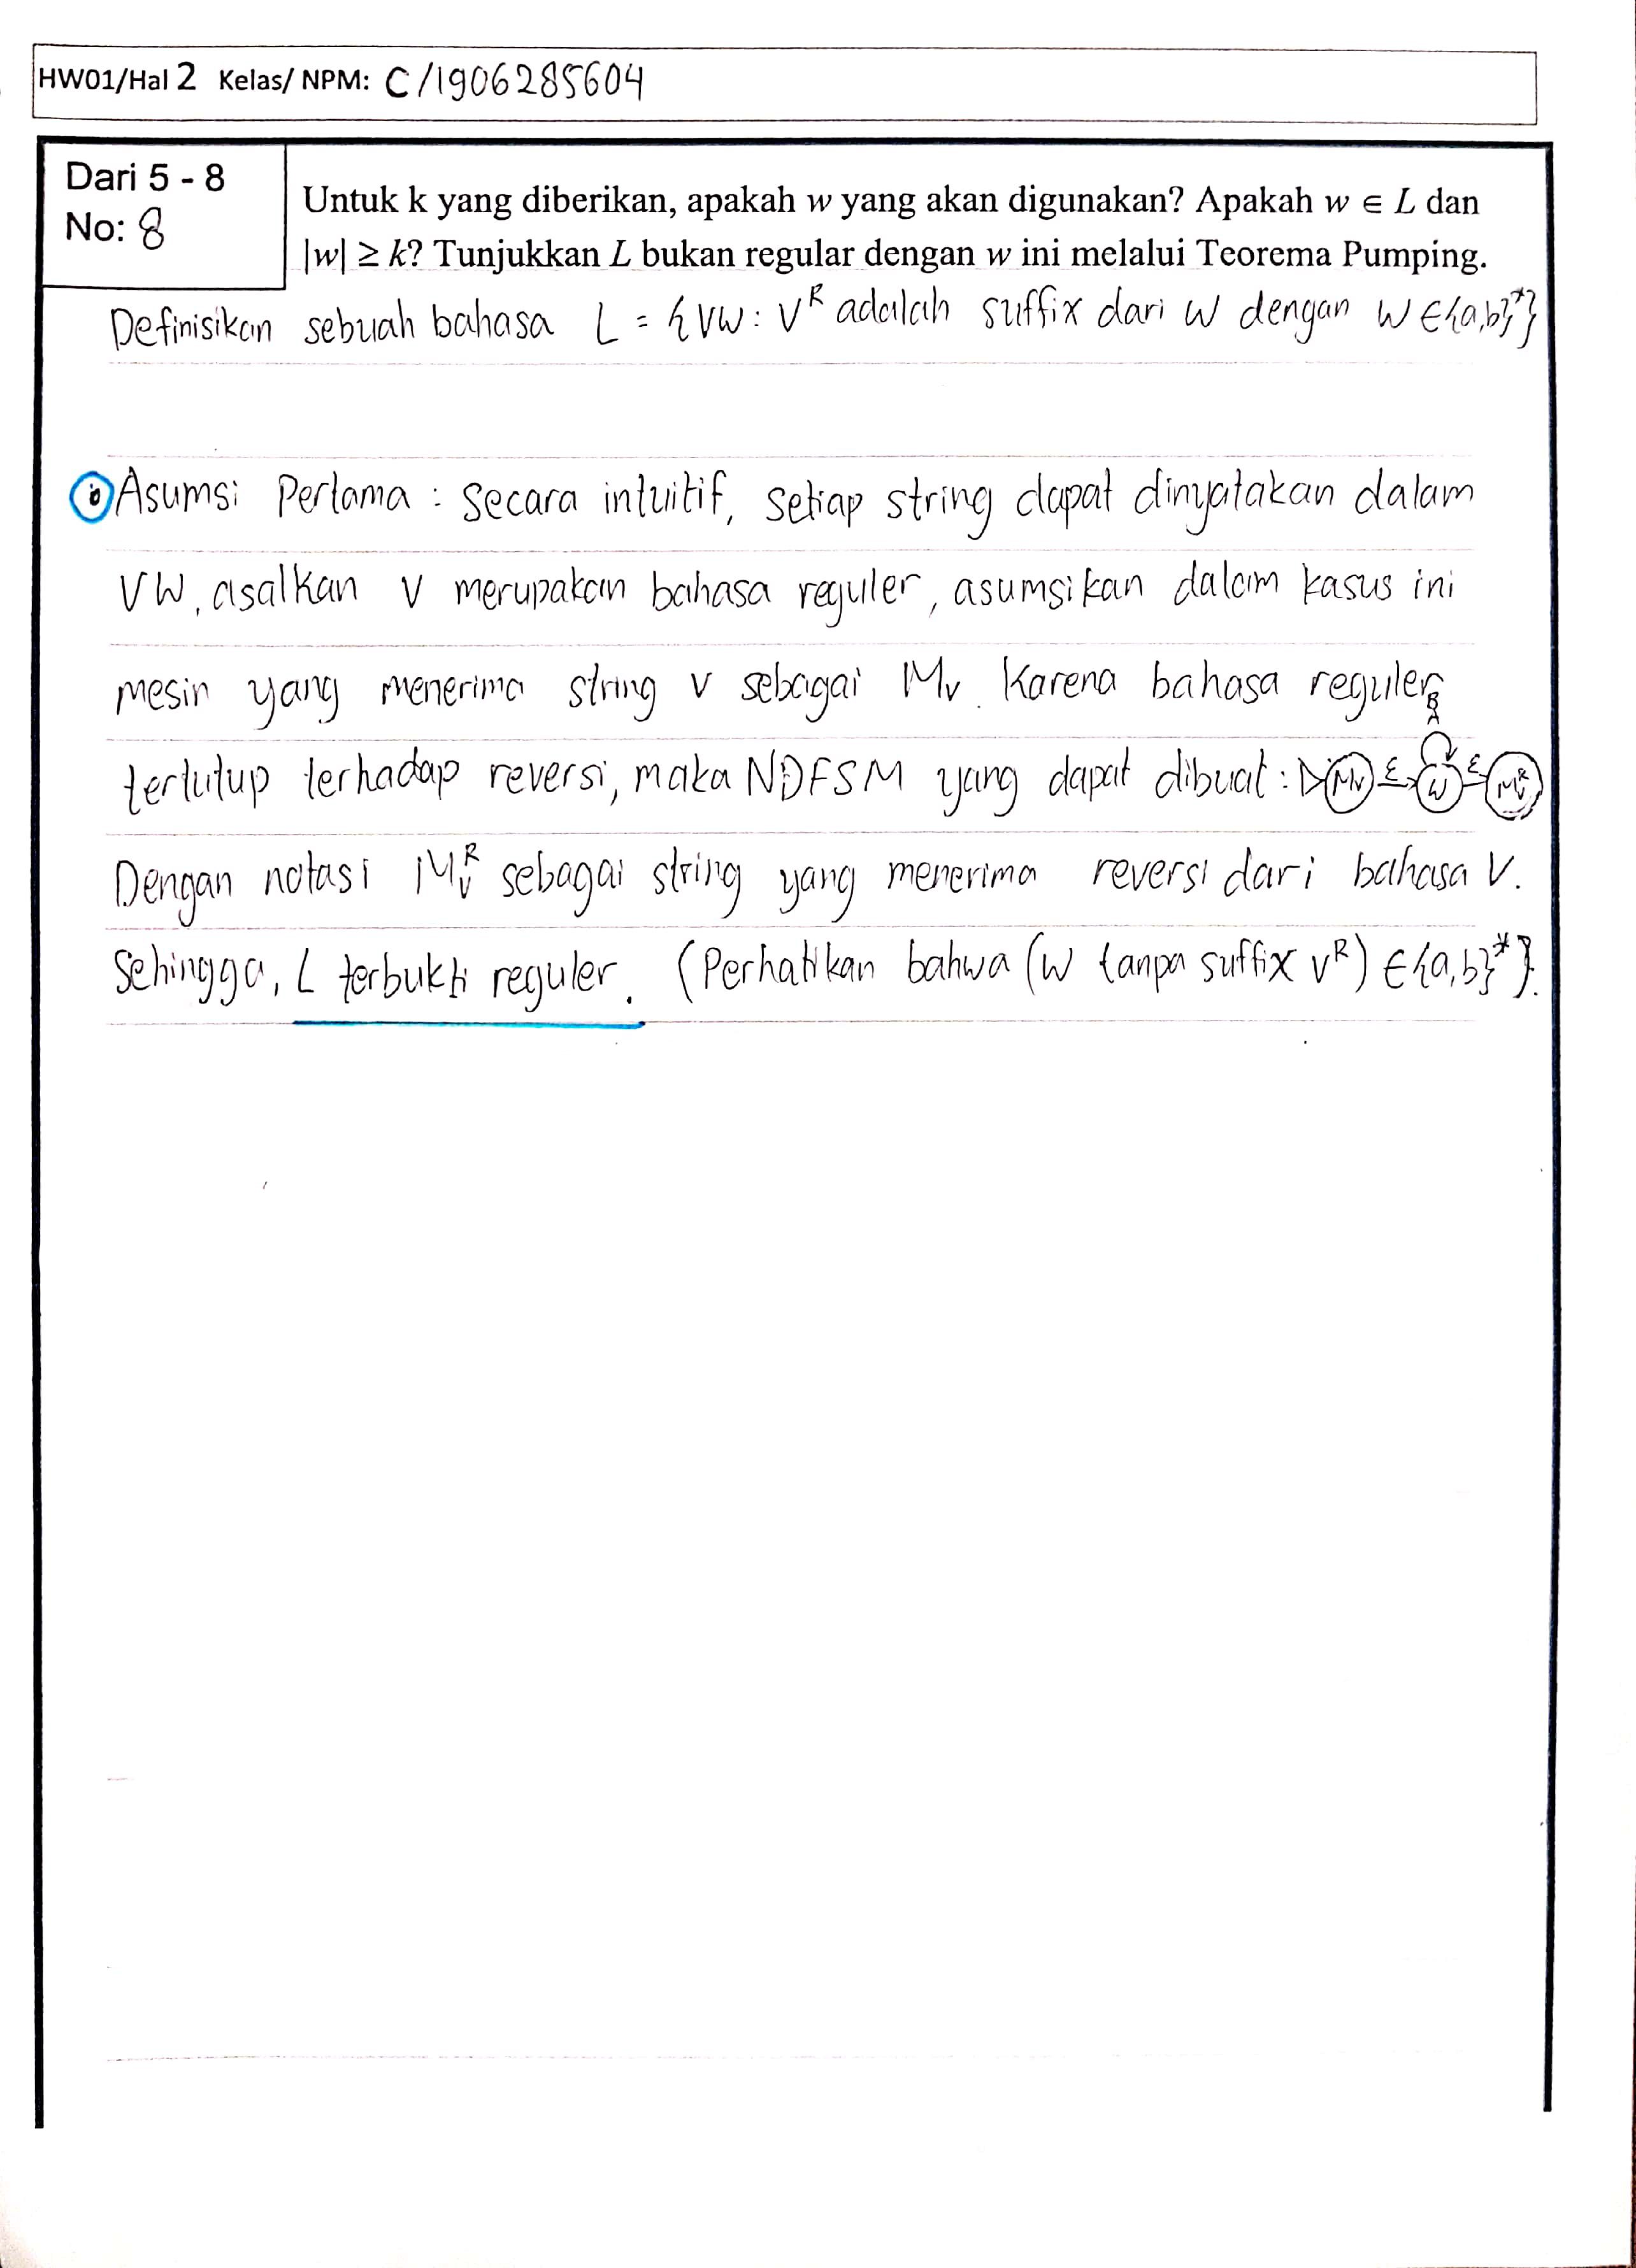 HW01/Hal 2 Kelas/ NPM: C/1906285604
Dari 5 - 8
No: 8
Untuk k yang diberikan, apakah w yang akan digunakan? Apakah w ∈ L dan
|w| ≥ k? Tunjukkan L bukan regular dengan w ini melalui Teorema Pumping.
Definisikan sebuah bahasa L = {VW: V^R adalah suffix dari W dengan W ∈{a,b}*}
Asumsi Pertama : Secara intuitif, setiap string dapat dinyatakan dalam
VW, asalkan V merupakan bahasa reguler, asumsikan dalam kasus ini
mesin yang menerima string v sebagai Mv. Karena bahasa reguler
tertutup terhadap reversi, maka NDFSM yang dapat dibuat: Mv ε W ε Mv^R
Dengan notasi Mv^R sebagai string yang menerima reversi dari bahasa V.
Sehingga, L terbukti reguler. (Perhatikan bahwa (W tanpa suffix V^R) ∈{a,b}*}.